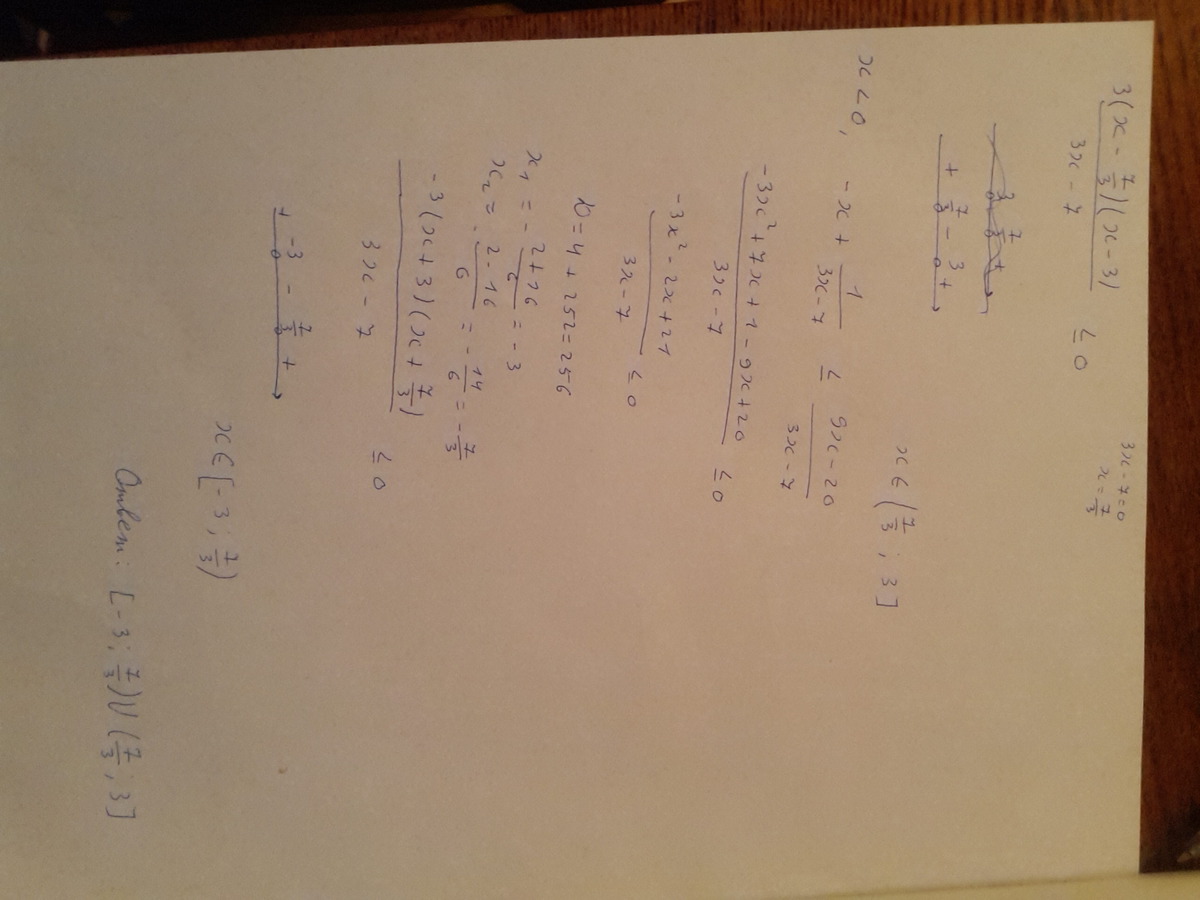 3(x - 7/3)(x - 3) / 3x - 7 ≤ 0
3x - 7 = 0
x = 7/3
+ 7/3 - 3 +
x ∈ (7/3 ; 3]
x < 0, -x + 1/3x - 7 ≤ 9x - 20/3x - 7
-3x² + 7x + 1 - 9x + 20 / 3x - 7 ≤ 0
-3x² - 2x + 21 / 3x - 7 ≤ 0
D = 4 + 252 = 256
x₁ = - 2 + 16/6 = -3
x₂ = - 2 - 16/6 = - 14/6 = - 7/3
-3(x + 3)(x + 7/3) / 3x - 7 ≤ 0
+ -3 - 7/3 +
x ∈ [-3 ; 7/3)
Ответ: [-3 ; 7/3) U (7/3 ; 3]